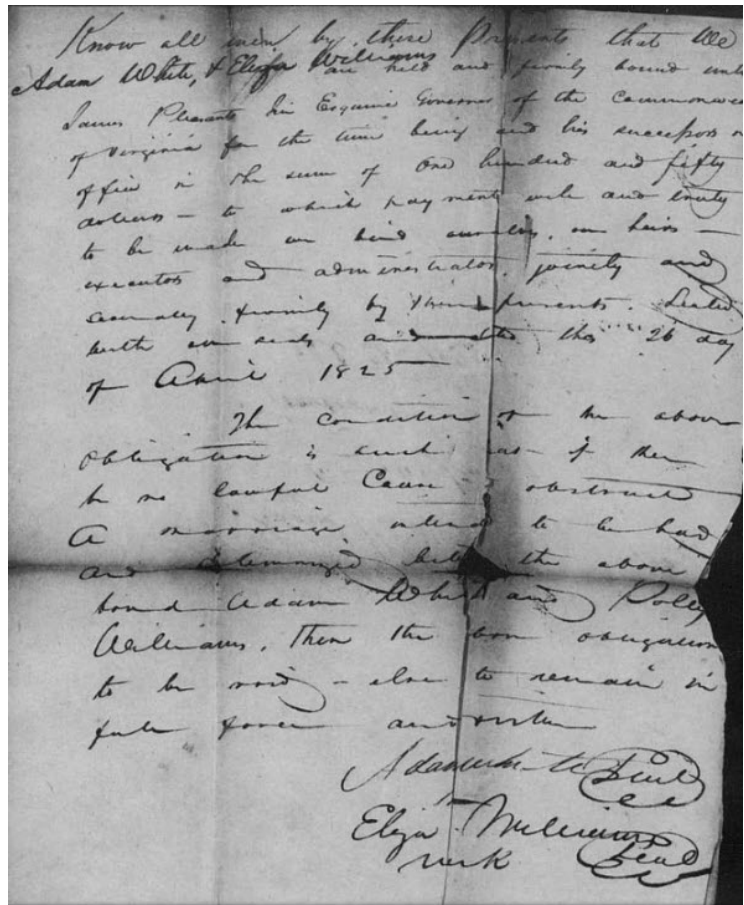 Know all men by these Presents that We
Adam White, & Elija Williams
are held and firmly bound unto
James Pleasants Jun Esquire Governor of the Commonwea
of Virginia for the time being and his successors in
office in the sum of One hundred and fifty
dollars – to which payment well and truly
to be made we bind ourselves, our heirs –
executors and administrators, jointly and
severally firmly by these presents. Sealed
with our seals and this 26 day
of April 1825
The condition of the above
Obligation is such that if there
be no lawful Cause obstruct
A marriage intend to be had
and Solemnized the above
bond Adam White and Polly
Williams, then the obligation
to be void – else to remain in
full force and virtue
Adam White Seal
Elija Williams
mark Seal